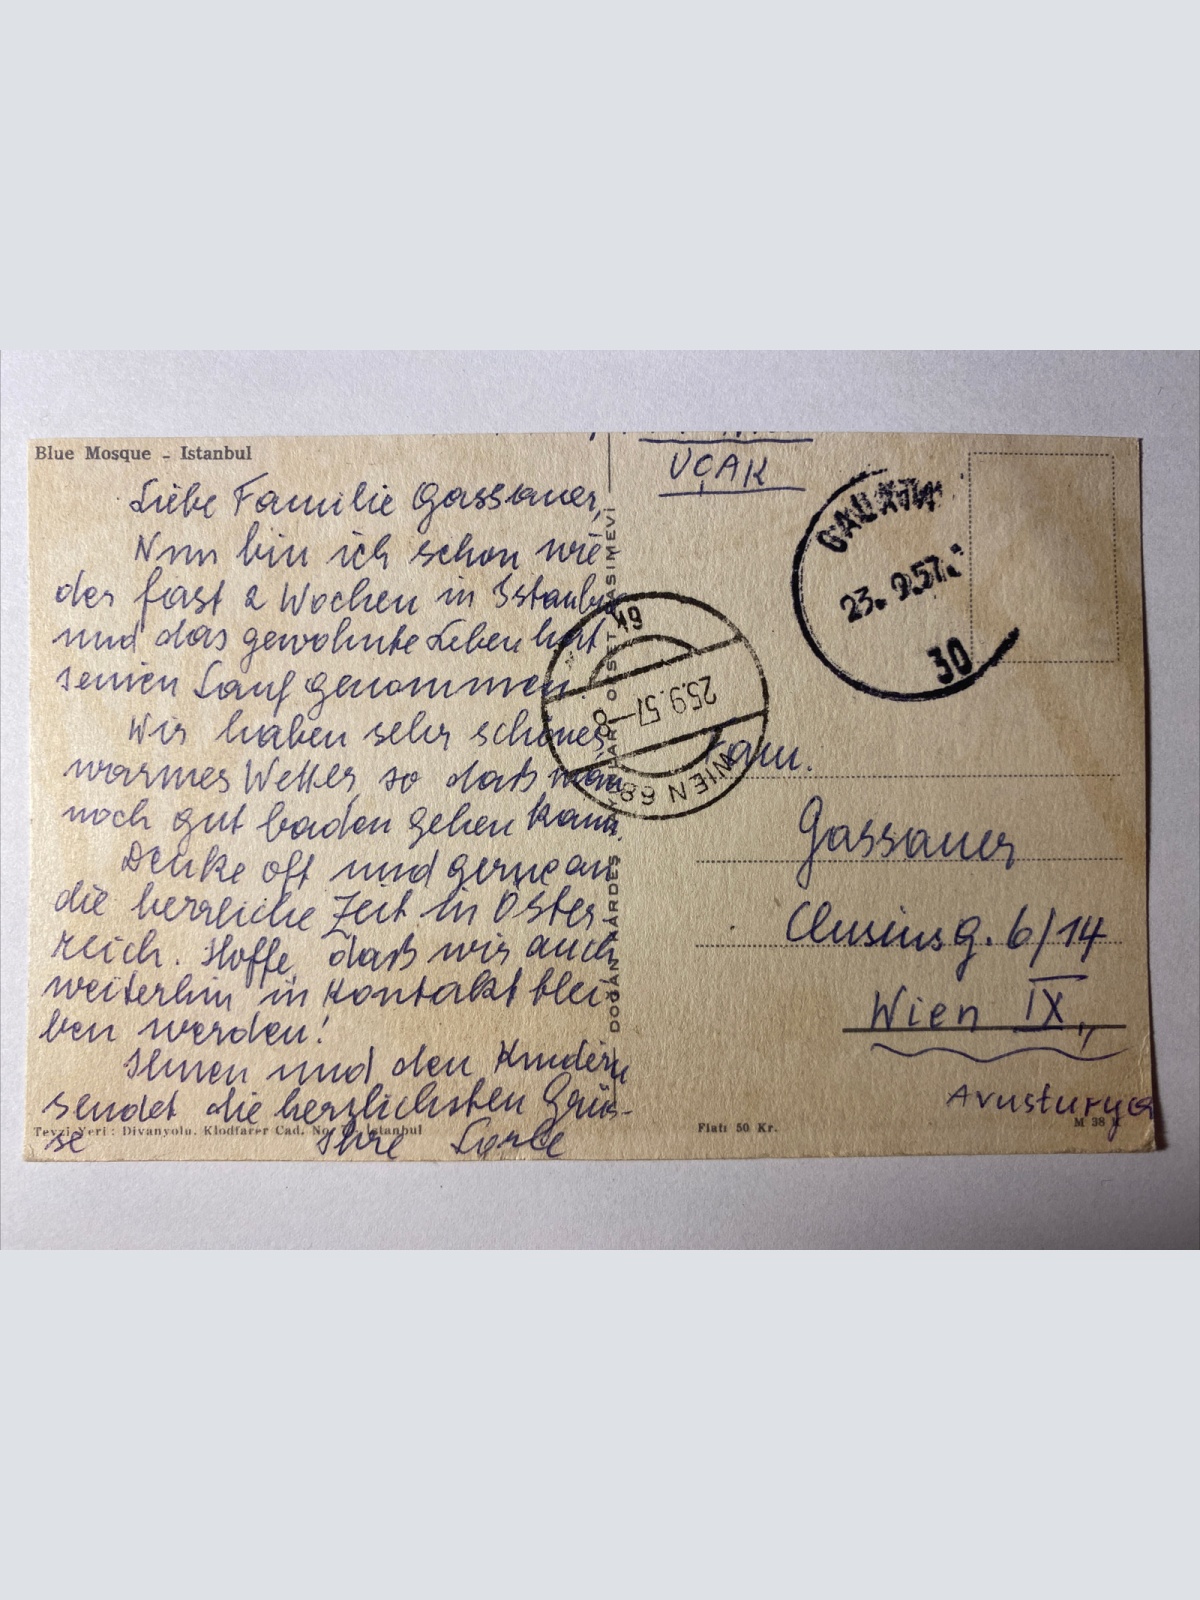 Blue Mosque - Istanbul
Liebe Familie Gassauer,
Nun bin ich schon wie
der fast 2 Wochen in Istanbul
und das gewohnte Leben hat
seinen Lauf genommen.
Wir haben sehr schönes
warmes Wetter, so daß man
noch gut baden gehen kann.
Denke oft und gerne an
die herrliche Zeit in Öster-
reich. Hoffe, daß wir auch
weiterhin in Kontakt blei-
ben werden!
Ihnen und den Kindern
sendet die herzlichsten Grüs-
se Ihre
Tevzi Yeri : Divanyolu. Klodfarer Cad. No. Istanbul
DOĞAN KARDEŞ OFSET BASIMEVİ
UÇAK
GALATA
23. 9.57
30
19
25.9.57-8
WIEN 68
Fam.
Gassauer
Clusiusg. 6/14
Wien IX,,
Avusturya
Fiatı 50 Kr.
M 38